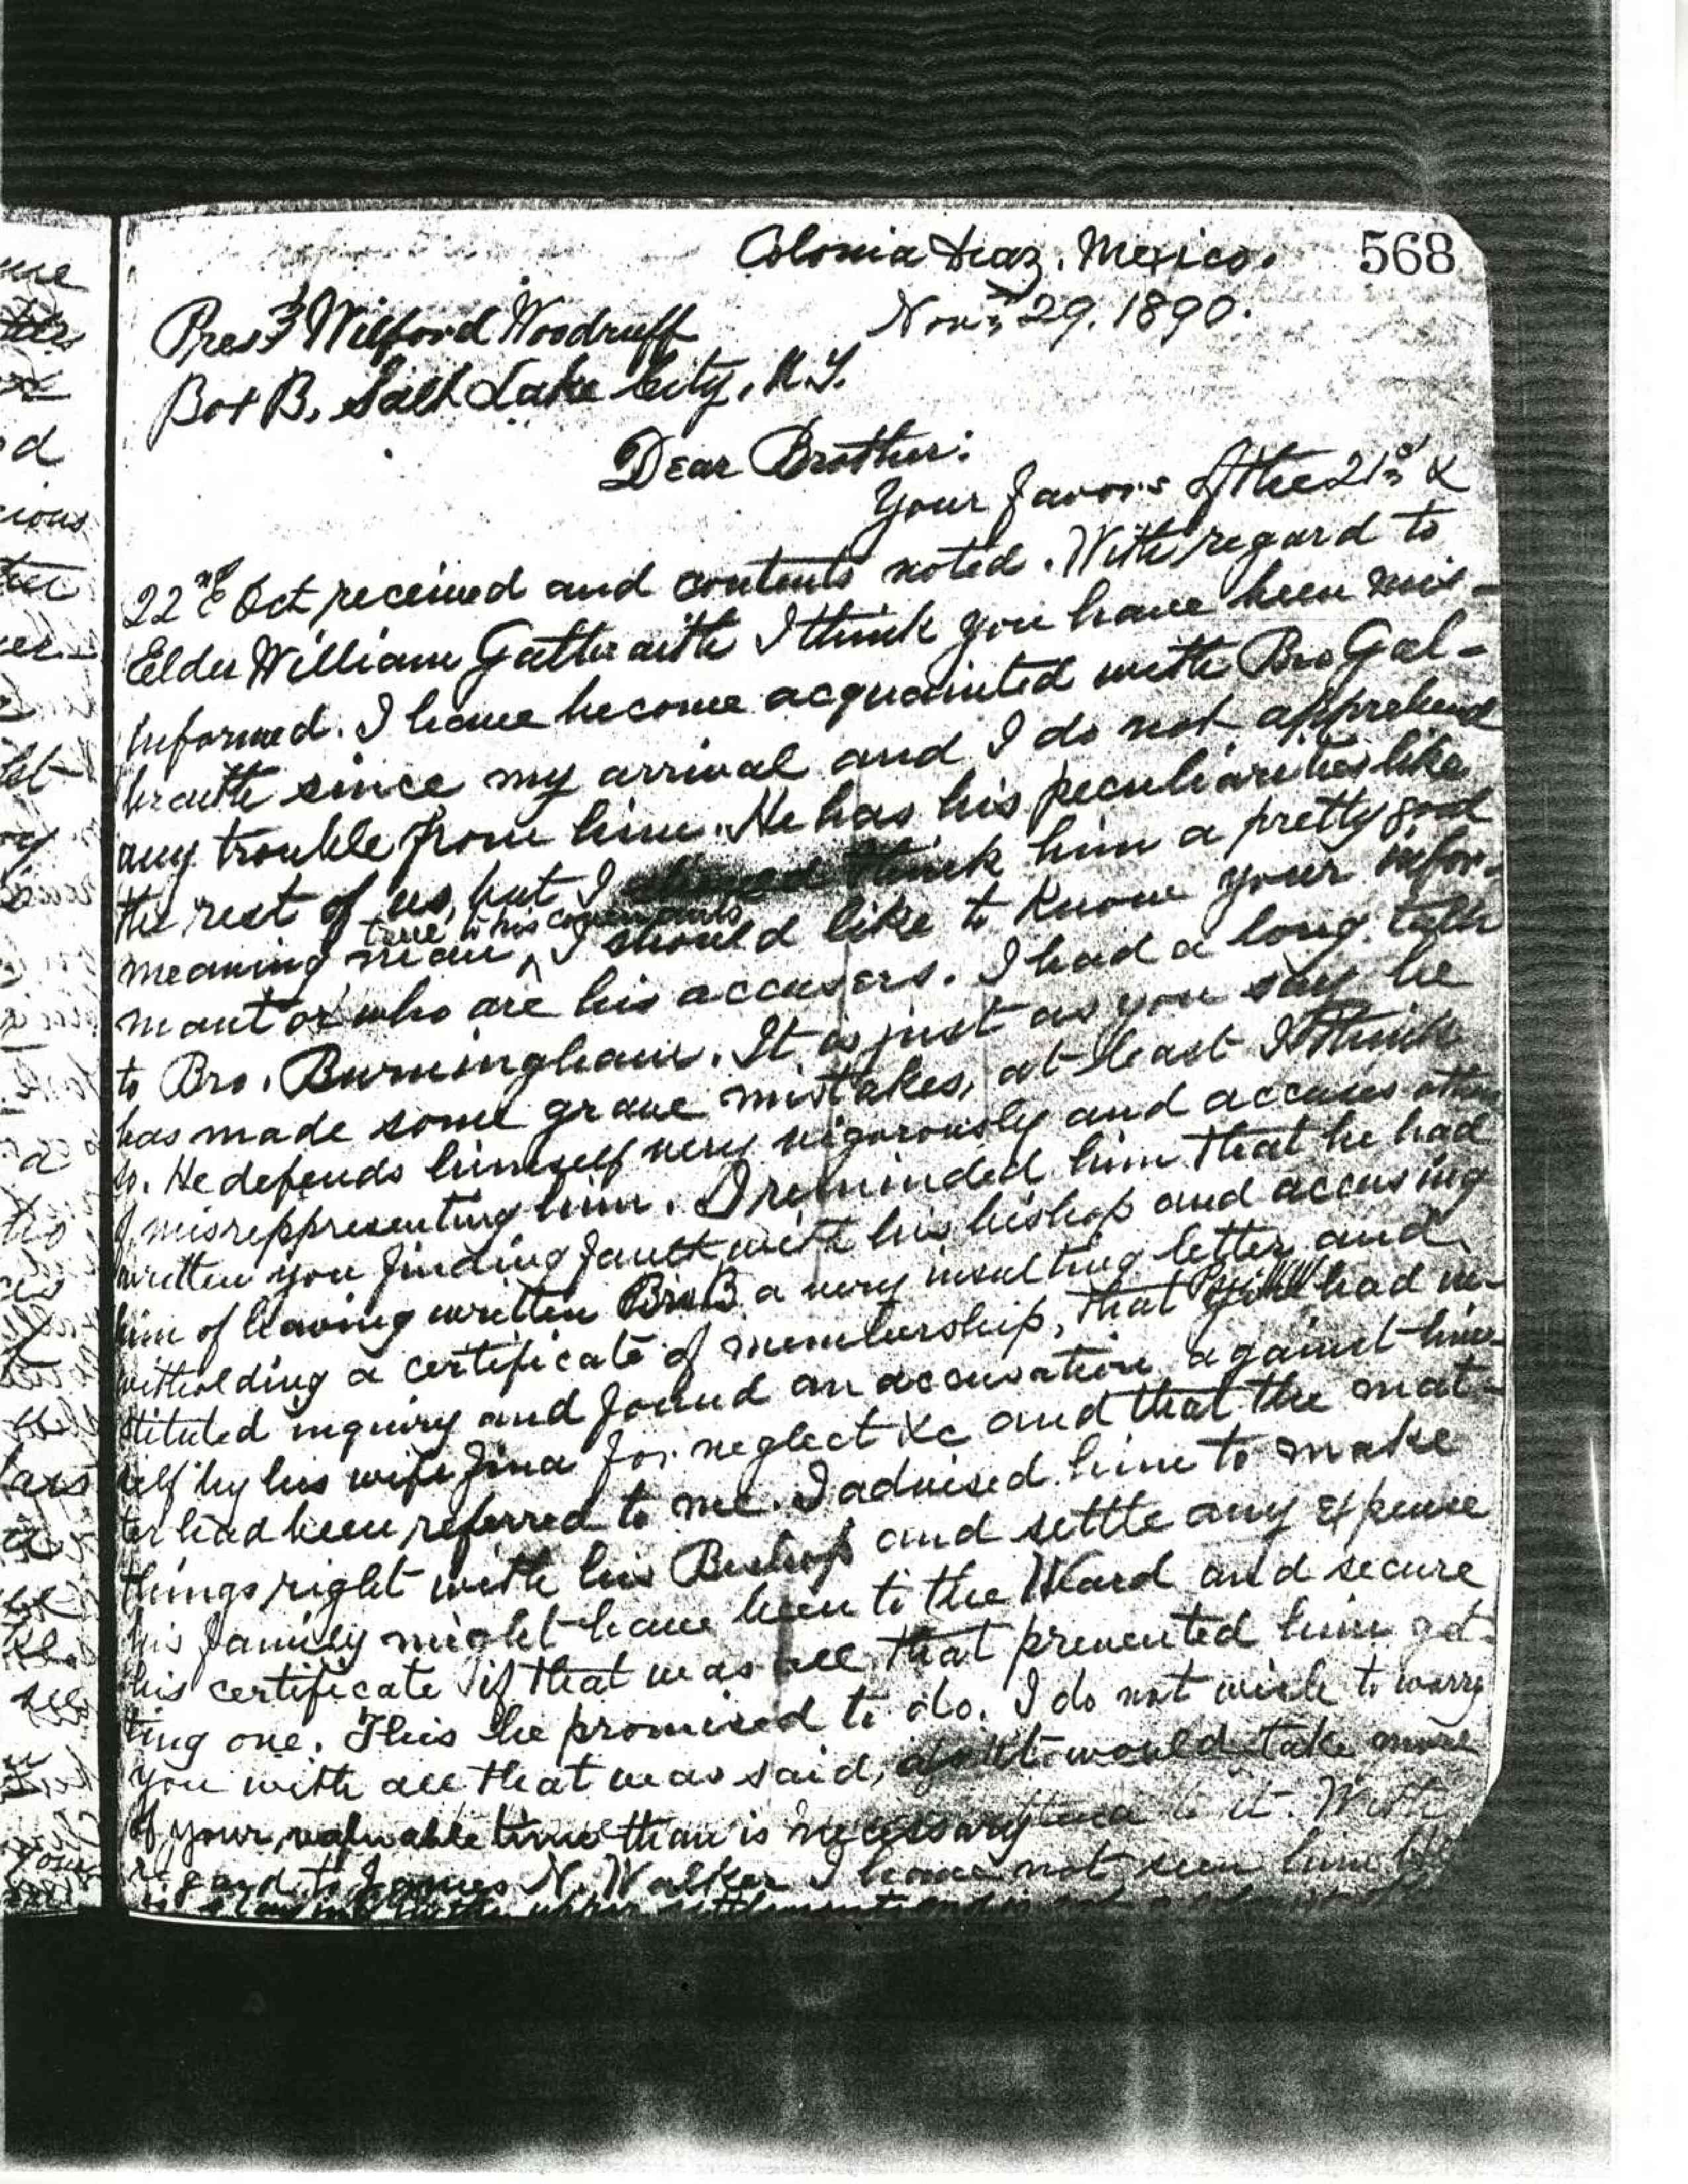 568
Colonia Diaz, Mexico.
Nov. 29, 1890.
Prest Wilford Woodruff
Box B, Salt Lake City, U.T.
Dear Brother:
Your favors of the 21st &
22nd Oct received and contents noted. With regard to
Elder William Galbraith I think you have been mis-
informed. I have become acquainted with Bro Gal-
braith since my arrival and I do not apprehend
any trouble from him. He has his peculiarities like
the rest of us, but I think him a pretty good
meaning man, true to his covenants, I should like to know your infor-
mant or who are his accusers. I had a long talk
to Bro. Burningham. It is just as you say he
has made some grave mistakes, at least I think
so. He defends himself very vigorously and accuses others
of misreppresenting him. I reminded him that he had
written you finding fault with his bishop and accusing
him of having written Bro B a very insulting letter and
witholding a certificate of membership, that had in-
stituted inquiry and found an accusation against him-
self by his wife for neglect &c and that the mat-
ter had been referred to me. I advised him to make
things right with his Bishop and settle any expense
his family might have been to the Ward and secure
his certificate if that was all that prevented him get-
ting one. This he promised to do. I do not wish to worry
you with all that was said, as it would take more
of your valuable time than is necessary to it. With
regard to James N. Walker I have not seen him
upper settlements and is not a